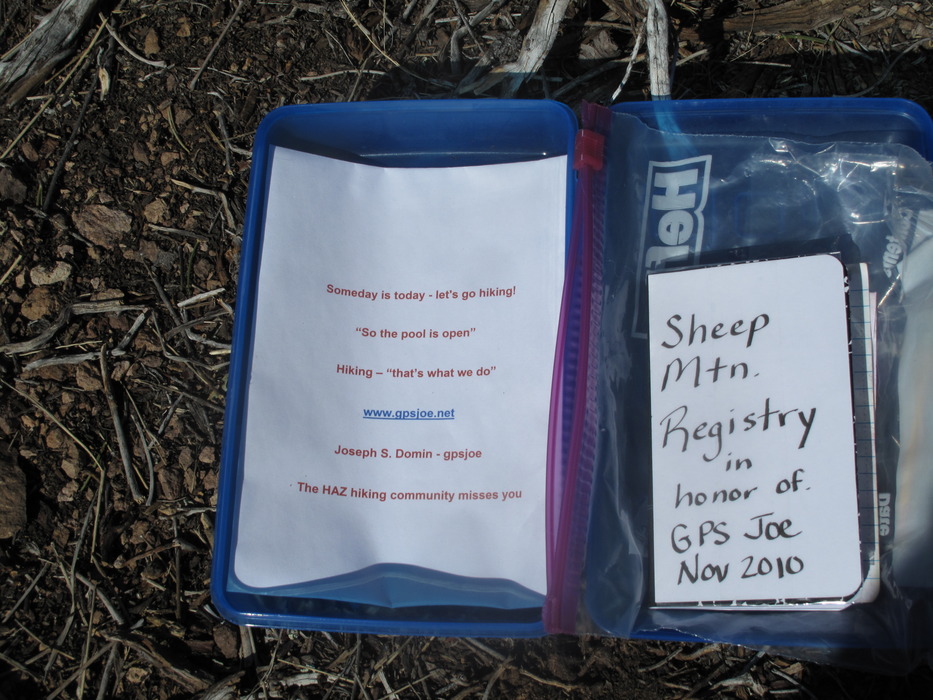 Someday is today - let's go hiking!
“So the pool is open”
Hiking – “that’s what we do”
www.gpsjoe.net
Joseph S. Domin - gpsjoe
The HAZ hiking community misses you
Sheep
Mtn.
Registry
in
honor of.
GPS Joe
Nov 2010
Date